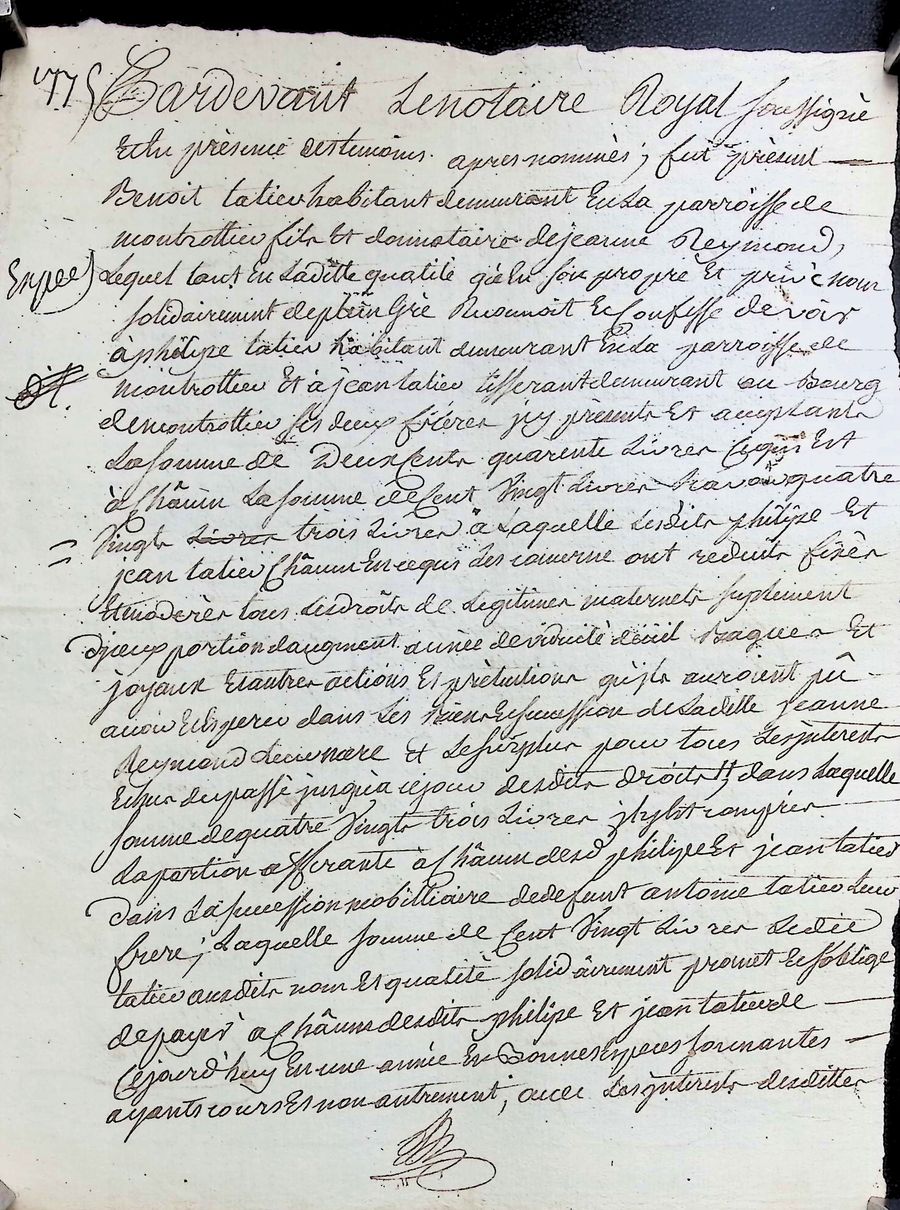 1775 Pardevant Lenotaire Royal soussigné
Et En présence des temoins apres nommés, fut présent
Benoit tatieu habitant demeurant En La parroisse de
montrottier fils Et donnataire de jeanne Reymond,
Lequel tant En Laditte qualité qu'En son propre Et privé nom
Expee
solidairement de plein Gré Reconnoit Et Confesse devoir
à philipe tatieu habitant demeurant En La parroisse de
montrottier Et à jean tatieu tisserant demeurant au Bourg
de montrottier ses deux fréres jcy présents Et acceptants
La somme de Deux Cents quarente Livres Cequi Est
à Châcun La somme de Cent Vingt Livres Savoir quatre
Vingts Livres trois Livres à Laquelle Lesdits philipe Et
jean tatieu Châcun En cequi Les concerne ont réduits fixés
Et modérés tous Les droits de Legitimes maternels suplement
d'jceux portion d'augment année de viduité deüil Bagues Et
joyaux Et autres actions Et prétentions qu'ils auroient pû
avoir Et Esperer dans Les Biens Et succession de Laditte jeanne
Reymond Leur mere Et Le surplus pour tous Les jnterets
Echus du passé jusqu'à ce jour desdits droits, dans Laquelle
somme de quatre Vingts trois Livres jl y Est compris
La portion afferante à Châcun desd philipe Et jean tatieu
dans La succession mobilliaire de defunt antoine tatieu Leur
frere; Laquelle somme de Cent Vingt Livres Ledit
tatieu ausdits nom Et qualité solidairement promet Et s'oblige
de payer à Châcun desdits philipe Et jean tatieu de
Cejourd'huy En une année En Bonnes Especes sonnantes
ayants cours Et non autrement, avec Les jnterets desdittes